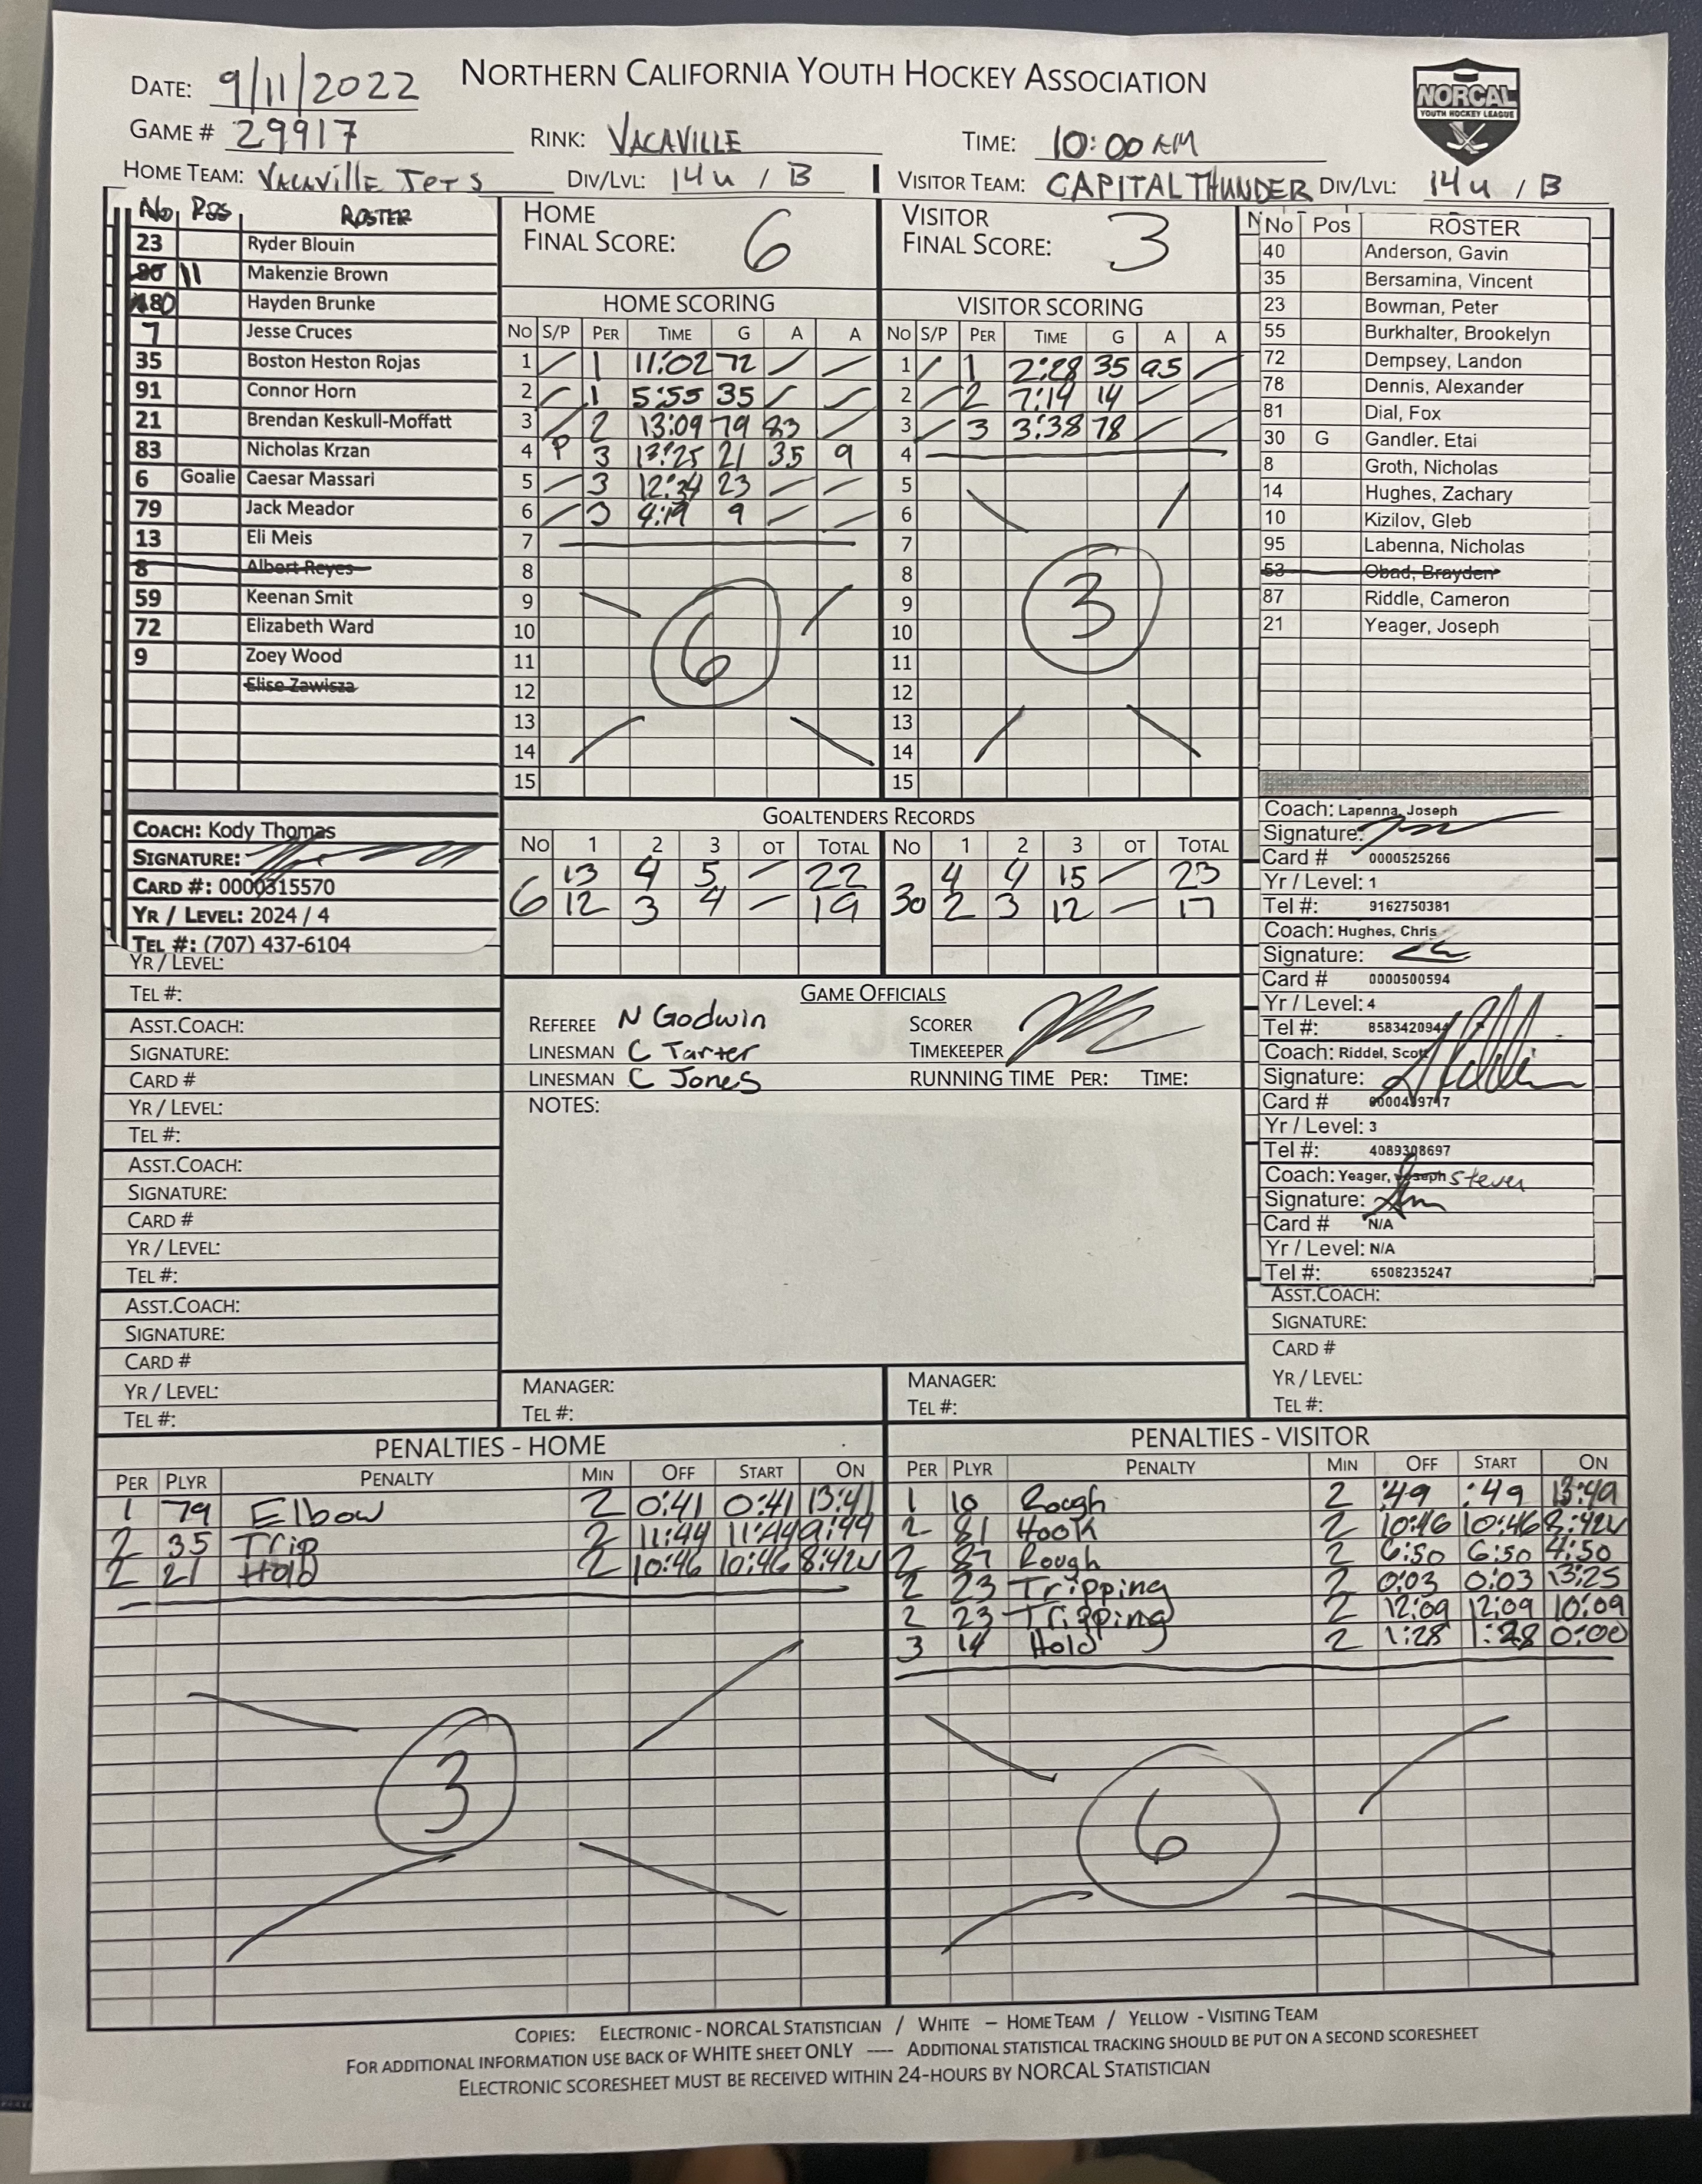 NORTHERN CALIFORNIA YOUTH HOCKEY ASSOCIATION
NORCAL
YOUTH HOCKEY LEAGUE
DATE: 9/11/2022
GAME # 29917 RINK: VACAVILLE TIME: 10:00 AM
HOME TEAM: VACAVILLE JETS DIV/LVL: 14u / B VISITOR TEAM: CAPITAL THUNDER DIV/LVL: 14u / B
No Pos ROSTER
23 Ryder Blouin
11 Makenzie Brown
80 Hayden Brunke
7 Jesse Cruces
35 Boston Heston Rojas
91 Connor Horn
21 Brendan Keskull-Moffatt
83 Nicholas Krzan
6 Goalie Caesar Massari
79 Jack Meador
13 Eli Meis
8 Albert Reyes
59 Keenan Smit
72 Elizabeth Ward
9 Zoey Wood
Elise Zawisza
COACH: Kody Thomas
SIGNATURE:
CARD #: 0000315570
YR / LEVEL: 2024 / 4
TEL #: (707) 437-6104
YR / LEVEL:
TEL #:
ASST.COACH:
SIGNATURE:
CARD #
YR / LEVEL:
TEL #:
ASST.COACH:
SIGNATURE:
CARD #
YR / LEVEL:
TEL #:
ASST.COACH:
SIGNATURE:
CARD #
YR / LEVEL:
TEL #:
HOME
FINAL SCORE: 6
VISITOR
FINAL SCORE: 3
HOME SCORING
No S/P PER TIME G A A
1 / 1 11:02 72 / /
2 / 1 5:55 35 / /
3 / 2 13:09 79 83 /
4 P 3 13:25 21 35 9
5 / 3 12:34 23 / /
6 / 3 4:19 9 / /
7
8
9
10
11
12
13
14
15
6
VISITOR SCORING
No S/P PER TIME G A A
1 / 1 2:28 35 95 /
2 / 2 7:14 14 / /
3 / 3 3:38 78 / /
4
5
6
7
8
9
10
11
12
13
14
15
3
GOALTENDERS RECORDS
No 1 2 3 OT TOTAL No 1 2 3 OT TOTAL
13 4 5 — 22 4 4 15 — 23
6 12 3 4 — 19 30 2 3 12 — 17
GAME OFFICIALS
REFEREE N Godwin SCORER
LINESMAN C Tarter TIMEKEEPER
LINESMAN C Jones RUNNING TIME PER: TIME:
NOTES:
MANAGER:
TEL #:
MANAGER:
TEL #:
No Pos ROSTER
40 Anderson, Gavin
35 Bersamina, Vincent
23 Bowman, Peter
55 Burkhalter, Brookelyn
72 Dempsey, Landon
78 Dennis, Alexander
81 Dial, Fox
30 G Gandler, Etai
8 Groth, Nicholas
14 Hughes, Zachary
10 Kizilov, Gleb
95 Labenna, Nicholas
53 Obad, Brayden
87 Riddle, Cameron
21 Yeager, Joseph
Coach: Lapenna, Joseph
Signature:
Card # 0000525266
Yr / Level: 1
Tel #: 9162750381
Coach: Hughes, Chris
Signature:
Card # 0000500594
Yr / Level: 4
Tel #: 8583420944
Coach: Riddel, Scott
Signature:
Card # 0000439717
Yr / Level: 3
Tel #: 4089308697
Coach: Yeager, Joseph Steven
Signature:
Card # N/A
Yr / Level: N/A
Tel #: 6508235247
ASST.COACH:
SIGNATURE:
CARD #
YR / LEVEL:
TEL #:
PENALTIES - HOME
PER PLYR PENALTY MIN OFF START ON
1 79 Elbow 2 0:41 0:41 13:41
2 35 Trip 2 11:44 11:44 9:44
2 21 Hold 2 10:46 10:46 8:42
3
PENALTIES - VISITOR
PER PLYR PENALTY MIN OFF START ON
1 10 Rough 2 :49 :49 13:49
2 81 Hook 2 10:46 10:46 8:42
2 87 Rough 2 6:50 6:50 4:50
2 23 Tripping 2 0:03 0:03 13:25
2 23 Tripping 2 12:09 12:09 10:09
3 14 Hold 2 1:28 1:28 0:00
6
COPIES: ELECTRONIC - NORCAL STATISTICIAN / WHITE – HOME TEAM / YELLOW - VISITING TEAM
FOR ADDITIONAL INFORMATION USE BACK OF WHITE SHEET ONLY ---- ADDITIONAL STATISTICAL TRACKING SHOULD BE PUT ON A SECOND SCORESHEET
ELECTRONIC SCORESHEET MUST BE RECEIVED WITHIN 24-HOURS BY NORCAL STATISTICIAN